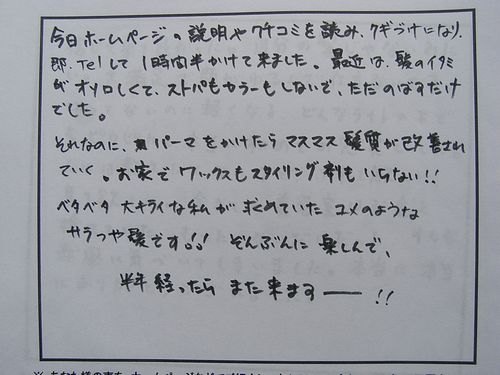 今日ホームページの説明やクチコミを読み、クギづけになり、
即、Telして1時間半かけて来ました。最近は、髪のイタミ
がオソロしくて、ストパもカラーもしないで、ただのばすだけ
でした。
それなのに、パーマをかけたらマスマス髪質が改善され
ていく。お家でワックスもスタイリング剤もいらない!!
ベタベタ大キライな私が求めていたユメのような
サラつや髪です。!  ぞんぶんに楽しんで、
半年経ったらまた来ます――!!